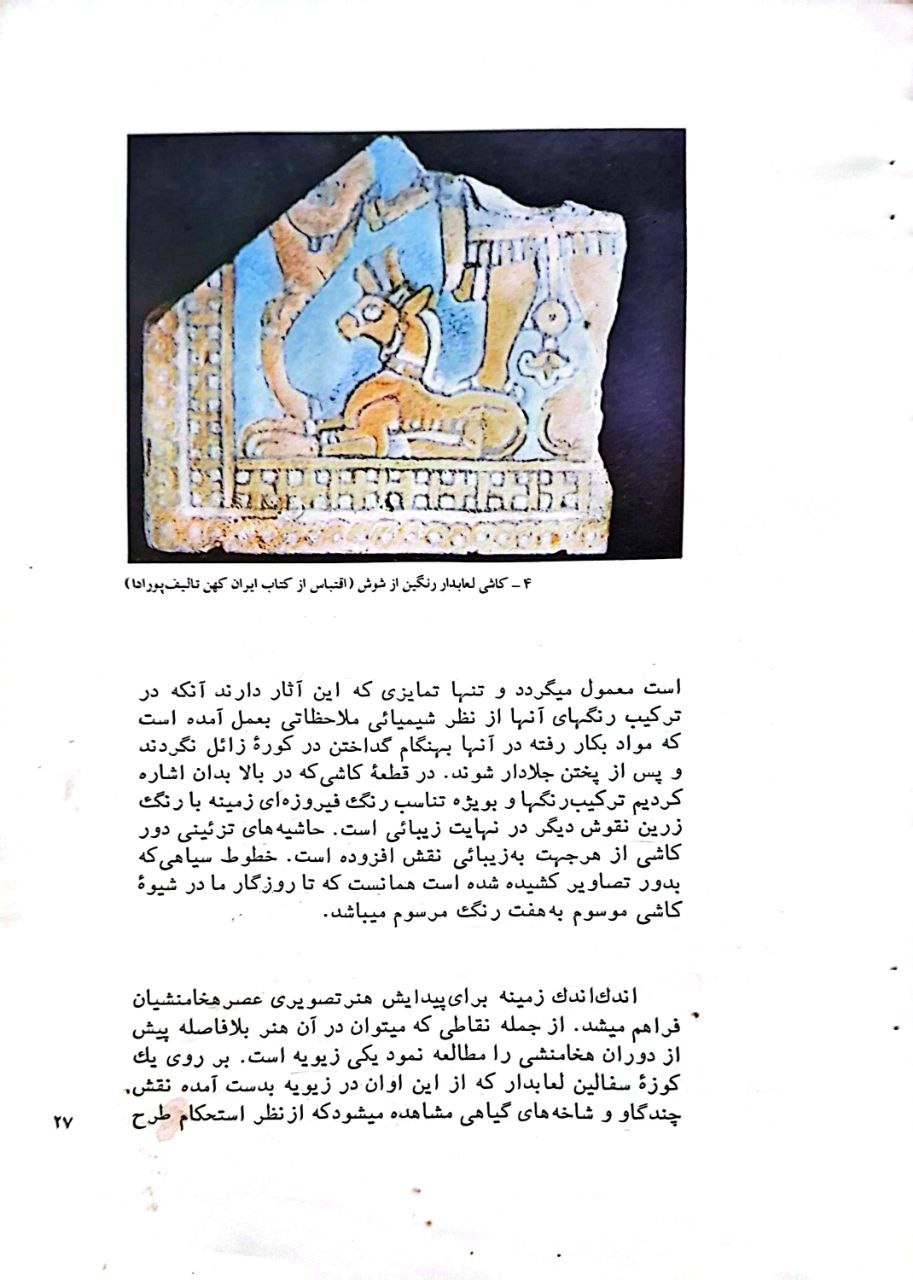 ۴ – کاشی لعابدار رنگین از شوش (اقتباس از کتاب ایران کهن تالیف پورادا)
است معمول میگردد و تنها تمایزی که این آثار دارند آنکه در
ترکیب رنگهای آنها از نظر شیمیائی ملاحظاتی بعمل آمده است
که مواد بکار رفته در آنها بهنگام گداختن در کورهٔ زائل نگردند
و پس از پختن جلادار شوند. در قطعهٔ کاشی‌که در بالا بدان اشاره
کردیم ترکیب‌رنگها و بویژه تناسب رنگ فیروزه‌ای زمینه با رنگ
زرین نقوش دیگر در نهایت زیبائی است. حاشیه‌های تزئینی دور
کاشی از هرجهت به‌زیبائی نقش افزوده است. خطوط سیاهی‌که
بدور تصاویر کشیده شده است همانست که تا روزگار ما در شیوهٔ
کاشی موسوم به‌هفت رنگ مرسوم میباشد.
اندك‌اندك زمینه برای‌پیدایش هنر تصویری عصر هخامنشیان
فراهم میشد. از جمله نقاطی که میتوان در آن هنر بلافاصله پیش
از دوران هخامنشی را مطالعه نمود یکی زیویه است. بر روی یك
کوزهٔ سفالین لعابدار که از این اوان در زیویه بدست آمده نقش
چندگاو و شاخه‌های گیاهی مشاهده میشودکه ازنظر استحکام طرح
۲۷